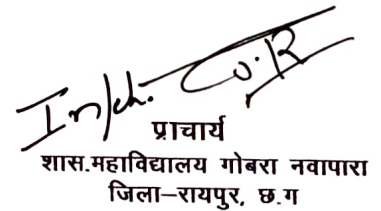 प्राचार्य
शास.महाविद्यालय गोबरा नवापारा
जिला–रायपुर, छ.ग